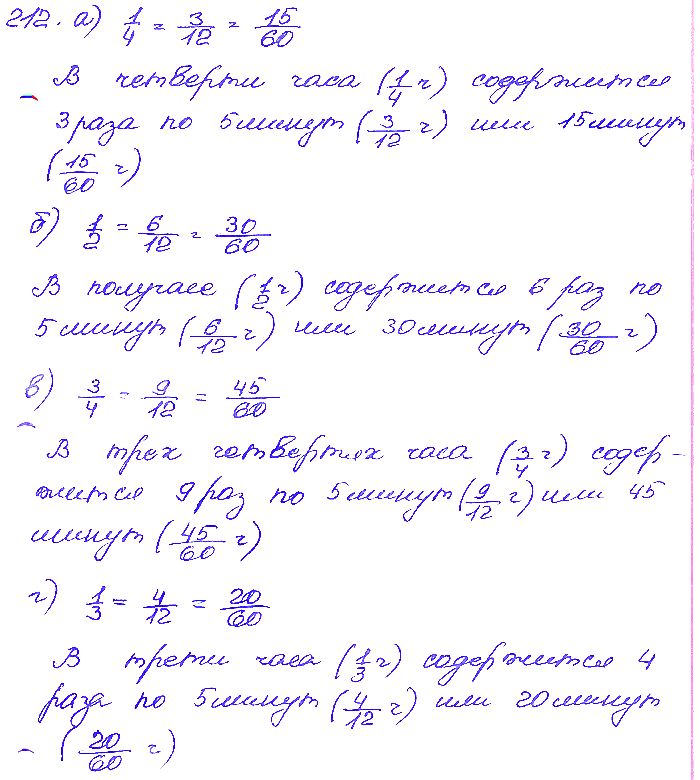 212. а) 1/4 = 3/12 = 15/60
В четверти часа (1/4 ч) содержится
3 раза по 5 минут (3/12 ч) или 15 минут
(15/60 ч)
б) 1/2 = 6/12 = 30/60
В получасе (1/2 ч) содержится 6 раз по
5 минут (6/12 ч) или 30 минут (30/60 ч)
в) 3/4 = 9/12 = 45/60
В трех четвертях часа (3/4 ч) содер-
жится 9 раз по 5 минут (9/12 ч) или 45
минут (45/60 ч)
г) 1/3 = 4/12 = 20/60
В трети часа (1/3 ч) содержится 4
раза по 5 минут (4/12 ч) или 20 минут
(20/60 ч)